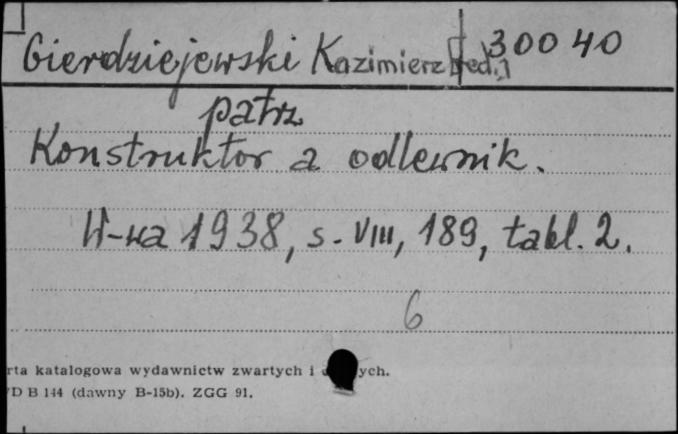 Gierdziejewski Kazimierz [red.] 30040
patrz
Konstruktor a odlewnik.
W-wa 1938, s. VIII, 189, tabl. 2.
6
rta katalogowa wydawnictw zwartych i ych.
D B 144 (dawny B-15b). ZGG 91.